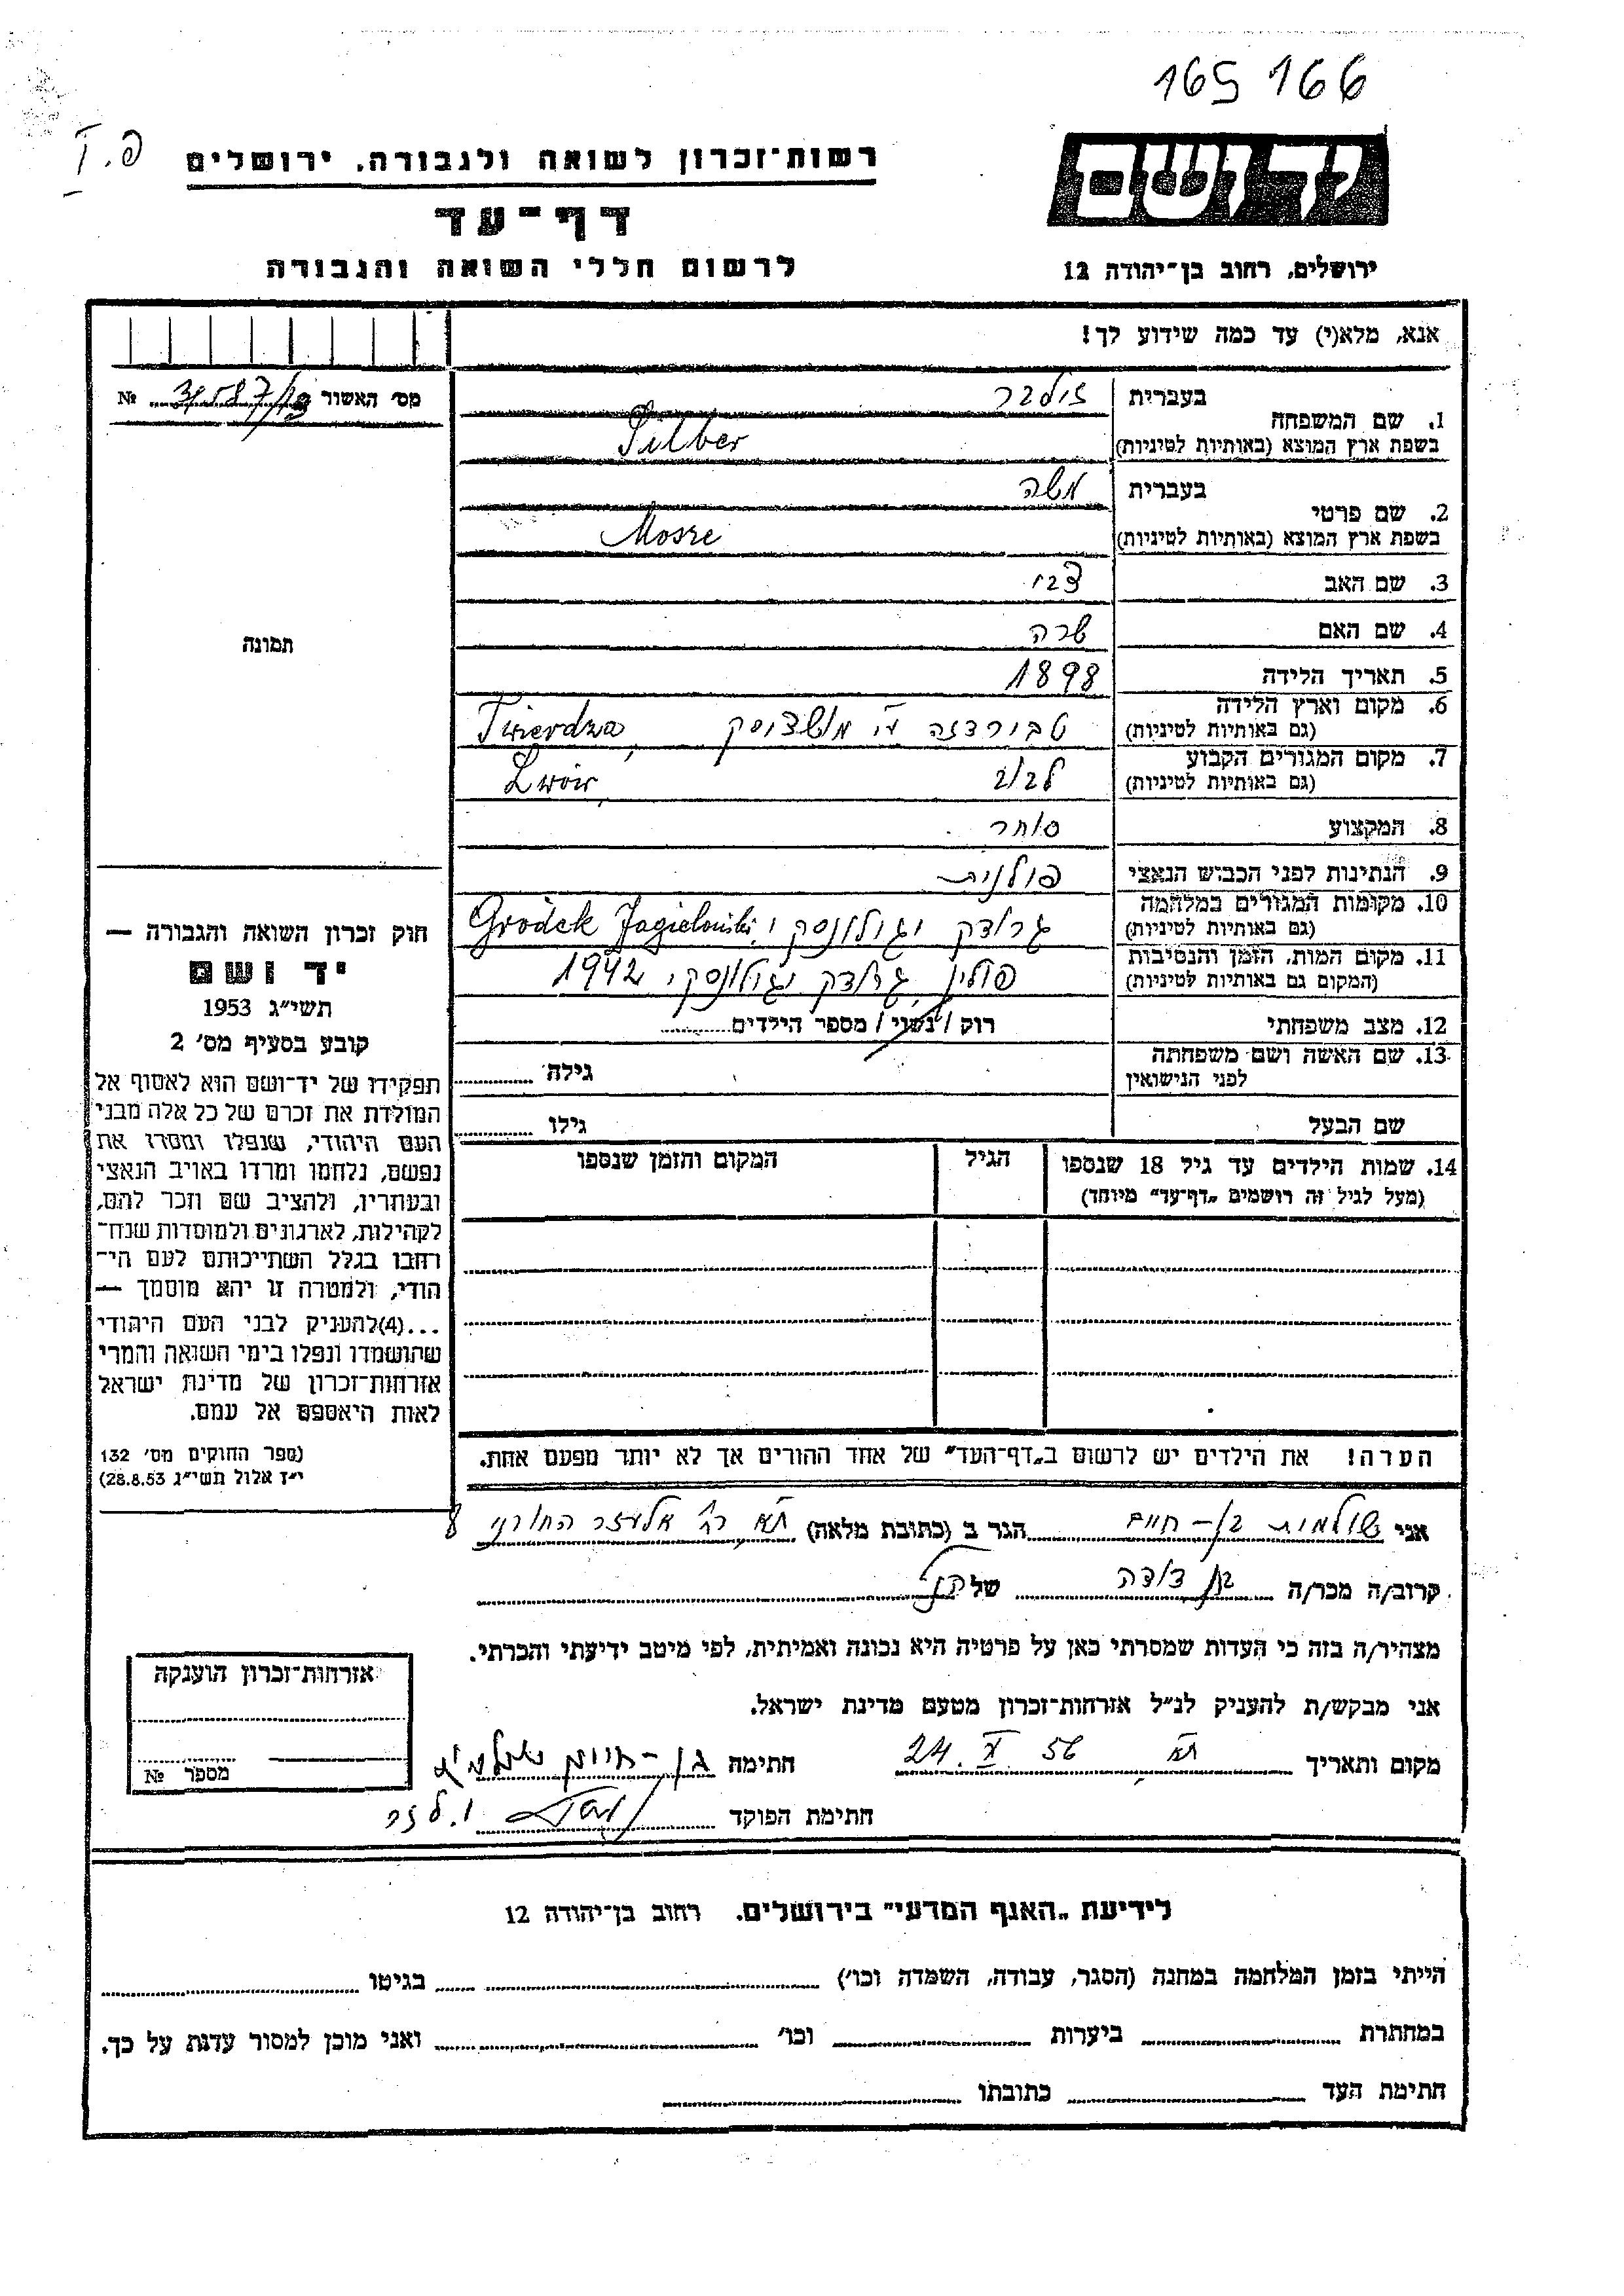 165 166
רשות־זכרון לשואה ולגבורה. ירושלים
דף־עד
לרשום חללי השואה והגבורה
יד ושם
ירושלים, רחוב בן־יהודה 12
אנא, מלא(י) עד כמה שידוע לך!
מס׳ האשור №
1. שם המשפחה
בעברית זילבר
בשפת ארץ המוצא (באותיות לטיניות) Silber
2. שם פרטי
בעברית משה
בשפת ארץ המוצא (באותיות לטיניות) Mosze
3. שם האב צבי
4. שם האם שרה
5. תאריך הלידה 1898
6. מקום וארץ הלידה
(גם באותיות לטיניות) טבירדזה Twierdza,
7. מקום המגורים הקבוע
(גם באותיות לטיניות) לבוב Lwów
8. המקצוע סוחר
9. הנתינות לפני הכבוש הנאצי פולנית
10. מקומות המגורים במלחמה
(גם באותיות לטיניות) גרודק יגולונסקי, Gródek Jagieloński
11. מקום המות, הזמן והנסיבות
(המקום גם באותיות לטיניות) פולין, גרודק יגולונסקי 1942
12. מצב משפחתי רוק / נשוי / מספר הילדים
13. שם האשה ושם משפחתה
לפני הנישואין גילה
שם הבעל גילו
14. שמות הילדים עד גיל 18 שנספו
(מעל לגיל זה רושמים „דף־עד״ מיוחד)
הגיל
המקום והזמן שנספו
תמונה
חוק זכרון השואה והגבורה —
יד ושם
תשי״ג 1953
קובע בסעיף מס׳ 2
תפקידו של יד־ושם הוא לאסוף אל
המולדת את זכרם של כל אלה מבני
העם היהודי, שנפלו ומסרו את
נפשם, נלחמו ומרדו באויב הנאצי
ובעוזריו, ולהציב שם וזכר להם,
לקהילות, לארגונים ולמוסדות שנח־
רחבו בגלל השתייכותם לעם הי־
הודי, ולמטרה זו יהא מוסמך —
...(4)להעניק לבני העם היהודי
שהושמדו ונפלו בימי השואה והמרי
אזרחות־זכרון של מדינת ישראל
לאות היאספם אל עמם.
(ספר החוקים מס׳ 132
י״ז אלול תשי״ג 28.8.53)
הערה! את הילדים יש לרשום ב„דף־העד״ של אחד ההורים אך לא יותר מפעם אחת.
אני שולמית בן-חיים הגר ב (כתובת מלאה) ת״א רח׳ אלעזר החורני 8
קרוב/ה מכר/ה בן דודה של הנ״ל
מצהיר/ה בזה כי העדות שמסרתי כאן על פרטיה היא נכונה ואמיתית, לפי מיטב ידיעתי והכרתי.
אני מבקש/ת להעניק לנ״ל אזרחות־זכרון מטעם מדינת ישראל.
מקום ותאריך ת״א 24. X 56 חתימה בן-חיים שולמית
חתימת הפוקד
אזרחות־זכרון הוענקה
מספר №
לידיעת „האגף המדעי״ בירושלים. רחוב בן־יהודה 12
הייתי בזמן המלחמה במחנה (הסגר, עבודה, השמדה וכו׳) בגיטו
במחתרת ביערות וכו׳ ואני מוכן למסור עדות על כך.
חתימת העד כתובתו